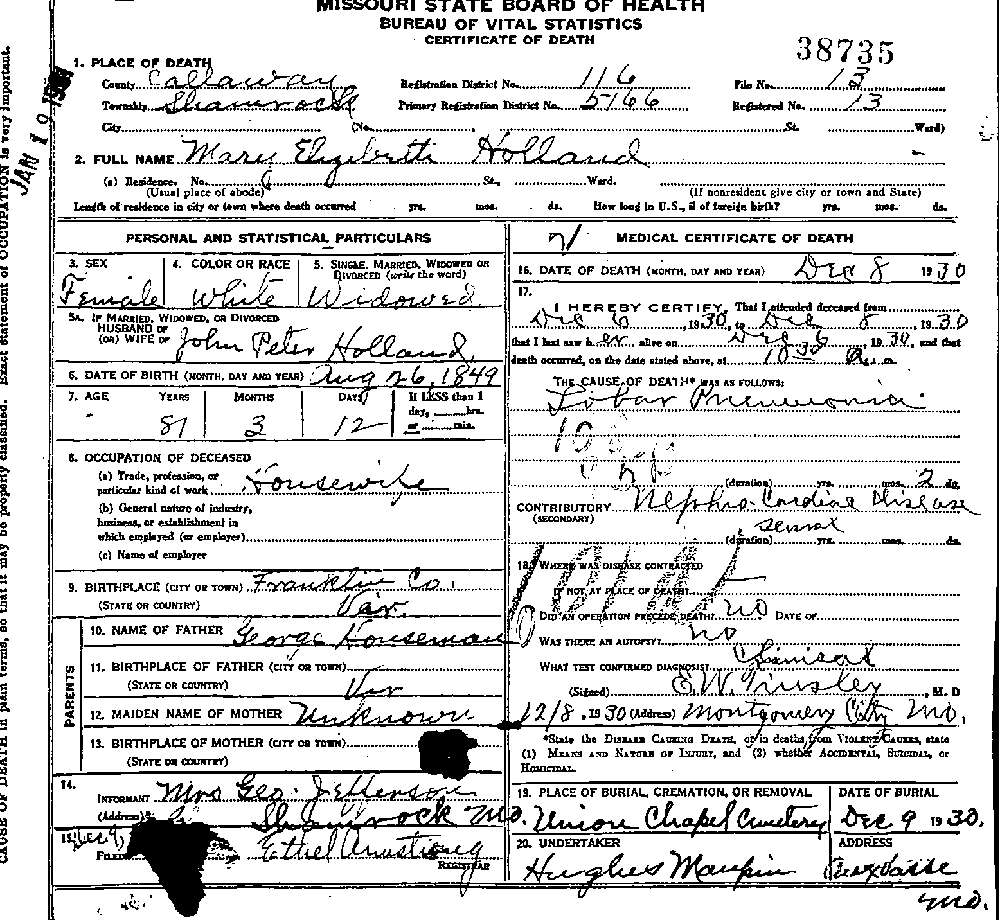 MISSOURI STATE BOARD OF HEALTH
BUREAU OF VITAL STATISTICS
CERTIFICATE OF DEATH
38735
JAN 10
1. PLACE OF DEATH
County Callaway Registration District No. 116 File No. 13
Township Shamrock Primary Registration District No. 5166 Registered No. 13
City (No. St. Ward)
2. FULL NAME Mary Elizibeth Holland
(a) Residence, No. St. Ward.
(Usual place of abode) (If nonresident give city or town and State)
Length of residence in city or town where death occurred yrs. mos. ds. How long in U.S., if of foreign birth? yrs. mos. ds.
PERSONAL AND STATISTICAL PARTICULARS
3. SEX 4. COLOR OR RACE 5. SINGLE, MARRIED, WIDOWED OR
DIVORCED (write the word)
Female White Widowed
5A. IF MARRIED, WIDOWED, OR DIVORCED
HUSBAND OF
(OR) WIFE OF John Peter Holland
6. DATE OF BIRTH (MONTH, DAY AND YEAR) Aug 26, 1849
7. AGE YEARS MONTHS DAYS If LESS than 1
day, hrs.
or min.
81 3 12
8. OCCUPATION OF DECEASED
(a) Trade, profession, or
particular kind of work Housewife
(b) General nature of industry,
business, or establishment in
which employed (or employer)
(c) Name of employer
9. BIRTHPLACE (CITY OR TOWN) Franklin Co.
(STATE OR COUNTRY) Var.
PARENTS
10. NAME OF FATHER George Houseman
11. BIRTHPLACE OF FATHER (CITY OR TOWN)
(STATE OR COUNTRY) Var
12. MAIDEN NAME OF MOTHER Unknown
13. BIRTHPLACE OF MOTHER (CITY OR TOWN)
(STATE OR COUNTRY)
14.
INFORMANT Mrs Geo. Jefferson
(Address) Shamrock Mo.
15.
FILED Ethel Armstrong
REGISTRAR
MEDICAL CERTIFICATE OF DEATH
16. DATE OF DEATH (MONTH, DAY AND YEAR) Dec 8 1930
17.
I HEREBY CERTIFY, That I attended deceased from
Dec 6, 1930, to Dec 8, 1930
that I last saw her alive on Dec 6, 1930, and that
death occurred, on the date stated above, at 10 30 a.m.
THE CAUSE OF DEATH* WAS AS FOLLOWS:
Lobar Pneumonia
(duration) yrs. mos. 2 ds.
CONTRIBUTORY Nephro-Cardiac Disease
(SECONDARY)
(duration) yrs. mos. ds.
18. WHERE WAS DISEASE CONTRACTED
IF NOT AT PLACE OF DEATH?
DID AN OPERATION PRECEDE DEATH? no DATE OF
WAS THERE AN AUTOPSY? no
WHAT TEST CONFIRMED DIAGNOSIS? Clinical
(Signed) E.W. Tinsley, M. D
12/8, 1930 (Address) Montgomery City Mo.
*State the DISEASE CAUSING DEATH, or in deaths from VIOLENT CAUSES, state
(1) MEANS AND NATURE OF INJURY, and (2) whether ACCIDENTAL, SUICIDAL, or
HOMICIDAL.
19. PLACE OF BURIAL, CREMATION, OR REMOVAL DATE OF BURIAL
Union Chapel Cemetery Dec 9 1930.
20. UNDERTAKER ADDRESS
Hughes Maupin Auxvasse
Mo.